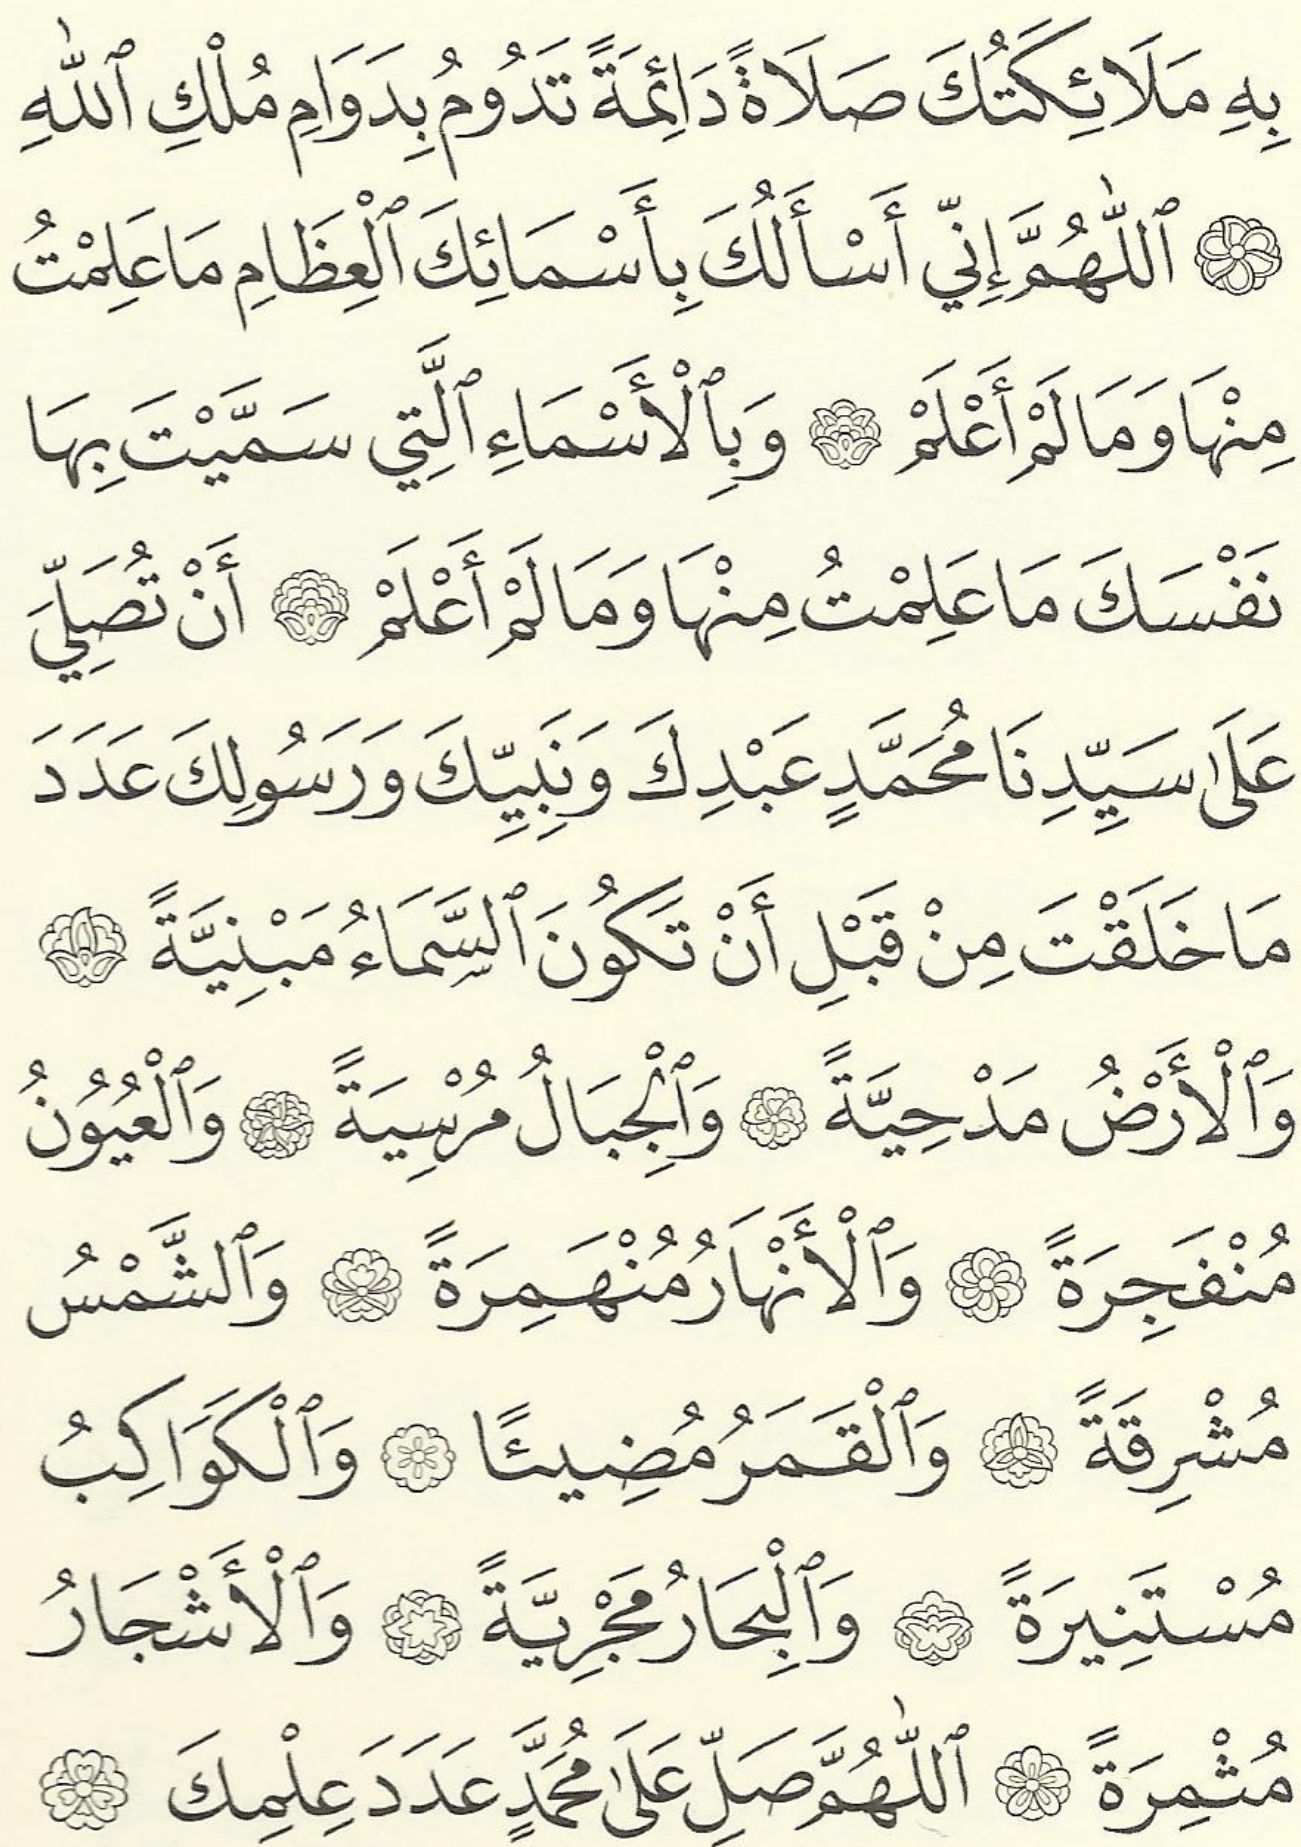 بِهِ مَلَائِكَتُكَ صَلَاةً دَائِمَةً تَدُومُ بِدَوَامِ مُلْكِ ٱللّٰهِ
ٱللّٰهُمَّ إِنِّي أَسْأَلُكَ بِأَسْمَائِكَ ٱلْعِظَامِ مَا عَلِمْتُ
مِنْهَا وَمَا لَمْ أَعْلَمْ وَبِٱلْأَسْمَاءِ ٱلَّتِي سَمَّيْتَ بِهَا
نَفْسَكَ مَا عَلِمْتُ مِنْهَا وَمَا لَمْ أَعْلَمْ أَنْ تُصَلِّيَ
عَلَىٰ سَيِّدِنَا مُحَمَّدٍ عَبْدِكَ وَنَبِيِّكَ وَرَسُولِكَ عَدَدَ
مَا خَلَقْتَ مِنْ قَبْلِ أَنْ تَكُونَ ٱلسَّمَاءُ مَبْنِيَّةً
وَٱلْأَرْضُ مَدْحِيَّةً وَٱلْجِبَالُ مُرْسِيَةً وَٱلْعُيُونُ
مُنْفَجِرَةً وَٱلْأَنْهَارُ مُنْهَمِرَةً وَٱلشَّمْسُ
مُشْرِقَةً وَٱلْقَمَرُ مُضِيئًا وَٱلْكَوَاكِبُ
مُسْتَنِيرَةً وَٱلْبِحَارُ مَجْرِيَّةً وَٱلْأَشْجَارُ
مُثْمِرَةً ٱللّٰهُمَّ صَلِّ عَلَىٰ مُحَمَّدٍ عَدَدَ عِلْمِكَ